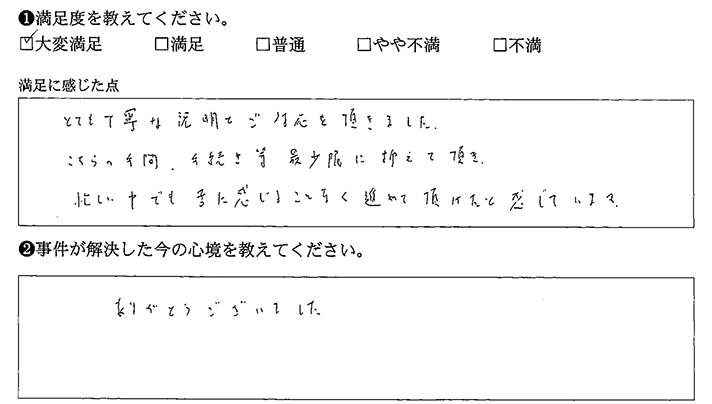 ❶満足度を教えてください。
☑大変満足 □満足 □普通 □やや不満 □不満
満足に感じた点
とても丁寧な説明とご対応を頂きました。
こちらの手間、手続き等最少限に抑えて頂き、
忙しい中でも苦に感じることなく進めて頂けたと感じています。
❷事件が解決した今の心境を教えてください。
ありがとうございました